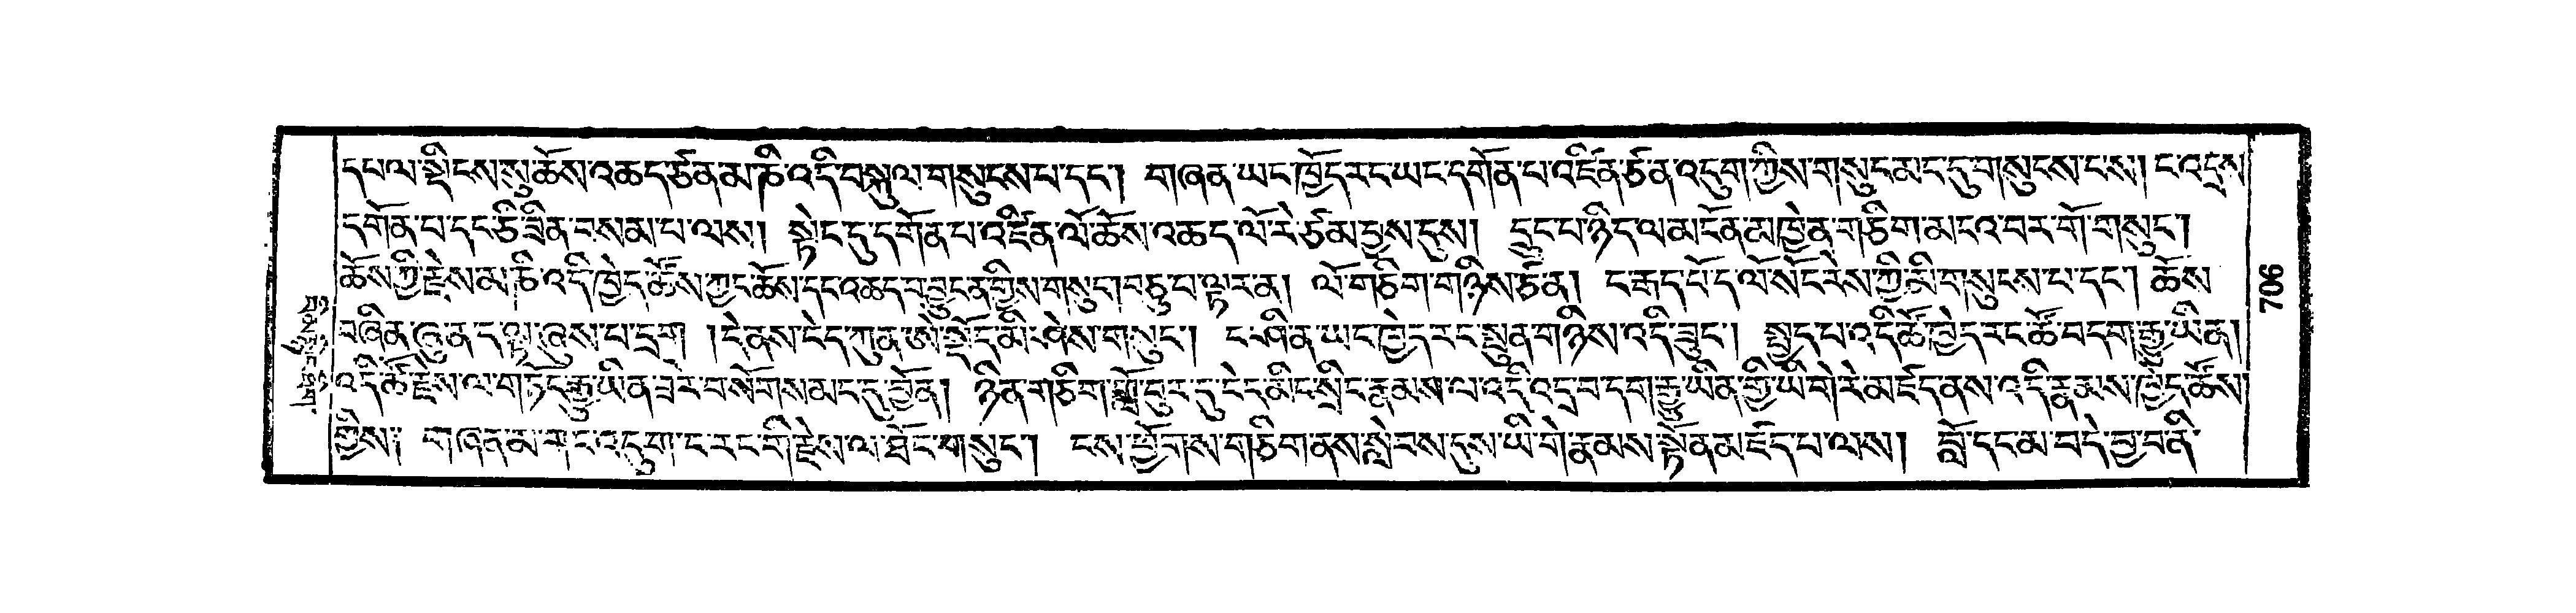 དཔལ་སྡིངས་སུ་ཆོས་འཆད་ཙན་མ་ཅི་འདི་བསྐུལ་གསུངས་པ་དང༌། གཞན་ཡང་ཁྱོད་རང་ཡང་དགོན་པ་འཛིན་ཙན་འདུག་གིས་གསུང་མང་དུ་གསུངས་ངས། ང་འདྲས
དགོན་པ་དང་ཅི་ཟིན་བསམ་པ་ལས། སྟེང་དུ་དགོན་པ་འཛིན་ལོ་ཆོས་འཆད་ལོ་རེ་ཙམ་བྱས་དུས། དྲུང་པ་ཉིད་ལ་མངོན་མཁྱེན་གཅིག་མངའ་བར་གོ་གསུང༌།
ཆོས་ཀྱི་རྗེས་མ་ཅི་འདི་ཁྱེད་ཚོས་ཀྱང་ཆོས་དང་འཆད་བཟླུང་ན་གྱིས་གསུང་བཅུ་པ་ལྟར་ན། ལོ་གཅིག་གཉིས་ཙན། ང་རྒད་པོ་ད་ལོ་སོང་རེས་ཀྱི་མི་གསུངས་པ་དང༌། ཆོས
བཞིན་ཞུ་ན་ད་ལྟ་ཞུས་པ་དྲག །དེ་ནས་ངེད་ཀུན་ཨེ་སྡོད་མི་ཤེས་གསུང༌། ང་ཤིན་ཡང་ཁྱེད་རང་སྤུན་གཉིས་འདི་ཟུང༌། སྤྱད་པ་འདི་ཚོ་ཁྱེད་རང་ཚོ་བདག་རྒྱུ་ཡིན།
འདི་ཚོ་རྗེས་ལ་གཏོང་རྒྱུ་ཡིན་ཟེར་བ་སོགས་མང་དུ་བྱོན། ཉིན་གཅིག་གློ་བུར་དུ་ངེད་མིང་སྲིང་རྣམས་པ་འདི་འདྲ་བ་དག་རྒྱུ་ཡིན་གྱི་ཡི་གེ་རེ་མཛད་ནས་འདི་རྣམས་ཁྱེད་ཚོས།
གྱིས། གཞན་མ་གང་འདུག་ང་རང་གི་རྗེས་ལ་ཐོང་གསུང༌། ངས་ཕྱོགས་གཅིག་ནས་སླེབས་དུས་ཡི་གེ་རྣམས་སྟོན་མཛད་པ་ལས། བློ་དང་མ་བདེ་བྱ་བ་ནི་